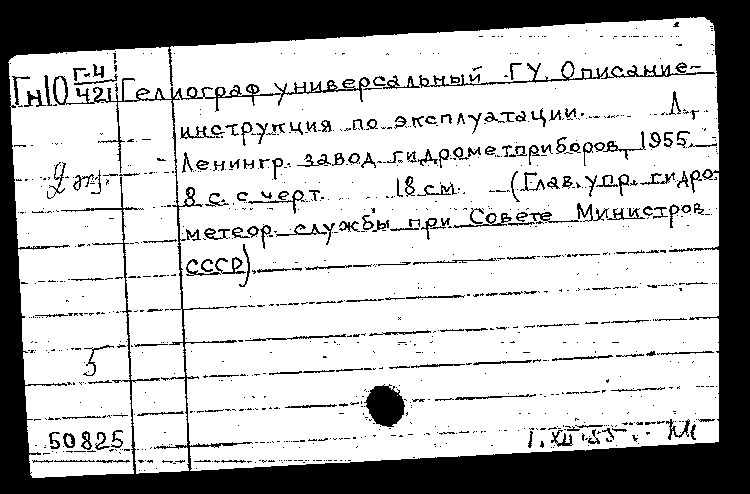 Гн10 Г-4/421 Гелиограф универсальный ГУ. Описание-
инструкция по эксплуатации. Л.,
Ленингр. завод гидрометприборов, 1955.
2 экз.
8 с. с черт. 18 см. (Глав. упр. гидро-
метеор. службы при Совете Министров
СССР)
5
50825
1.XII.55